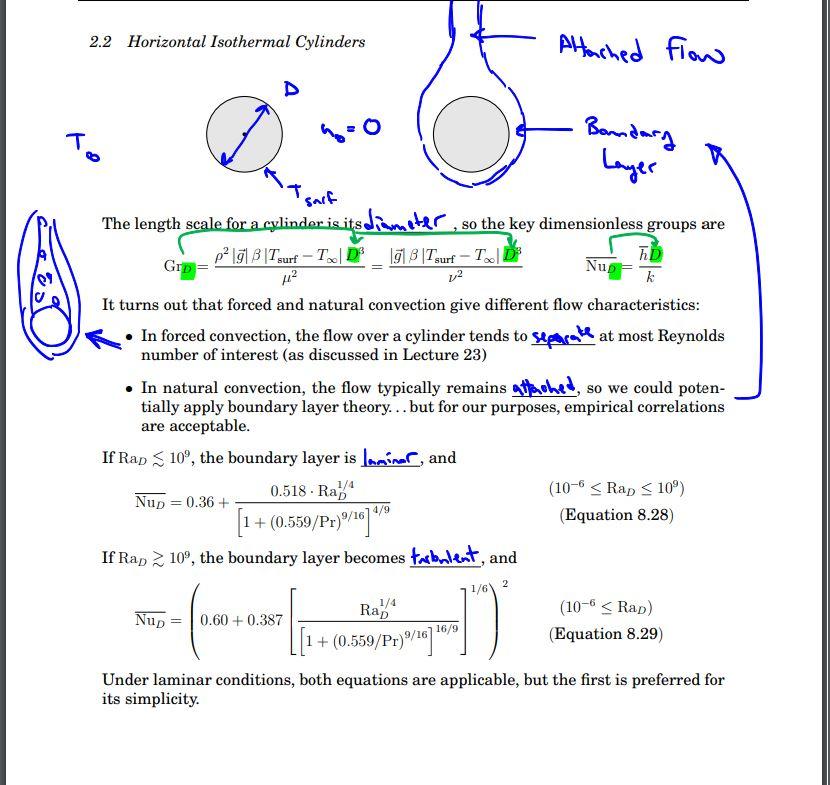 2.2 Horizontal Isothermal Cylinders
Attached Flow
D
T∞
h₀ = 0
Boundary
Layer
Tsurf
The length scale for a cylinder is its diameter, so the key dimensionless groups are
Gr_D = ρ² |g⃗| β |T_surf − T_∞| D³ / μ² = |g⃗| β |T_surf − T_∞| D³ / ν²    N̅u̅_D = h̅D / k
It turns out that forced and natural convection give different flow characteristics:
• In forced convection, the flow over a cylinder tends to separate at most Reynolds
number of interest (as discussed in Lecture 23)
• In natural convection, the flow typically remains attached, so we could poten-
tially apply boundary layer theory...but for our purposes, empirical correlations
are acceptable.
If Ra_D ≲ 10⁹, the boundary layer is laminar, and
N̅u̅_D = 0.36 + 0.518 · Ra_D^{1/4} / [1 + (0.559/Pr)^{9/16}]^{4/9}    (10⁻⁶ ≤ Ra_D ≤ 10⁹)
(Equation 8.28)
If Ra_D ≳ 10⁹, the boundary layer becomes turbulent, and
N̅u̅_D = (0.60 + 0.387 [Ra_D^{1/4} / [1 + (0.559/Pr)^{9/16}]^{16/9}]^{1/6})²    (10⁻⁶ ≤ Ra_D)
(Equation 8.29)
Under laminar conditions, both equations are applicable, but the first is preferred for
its simplicity.